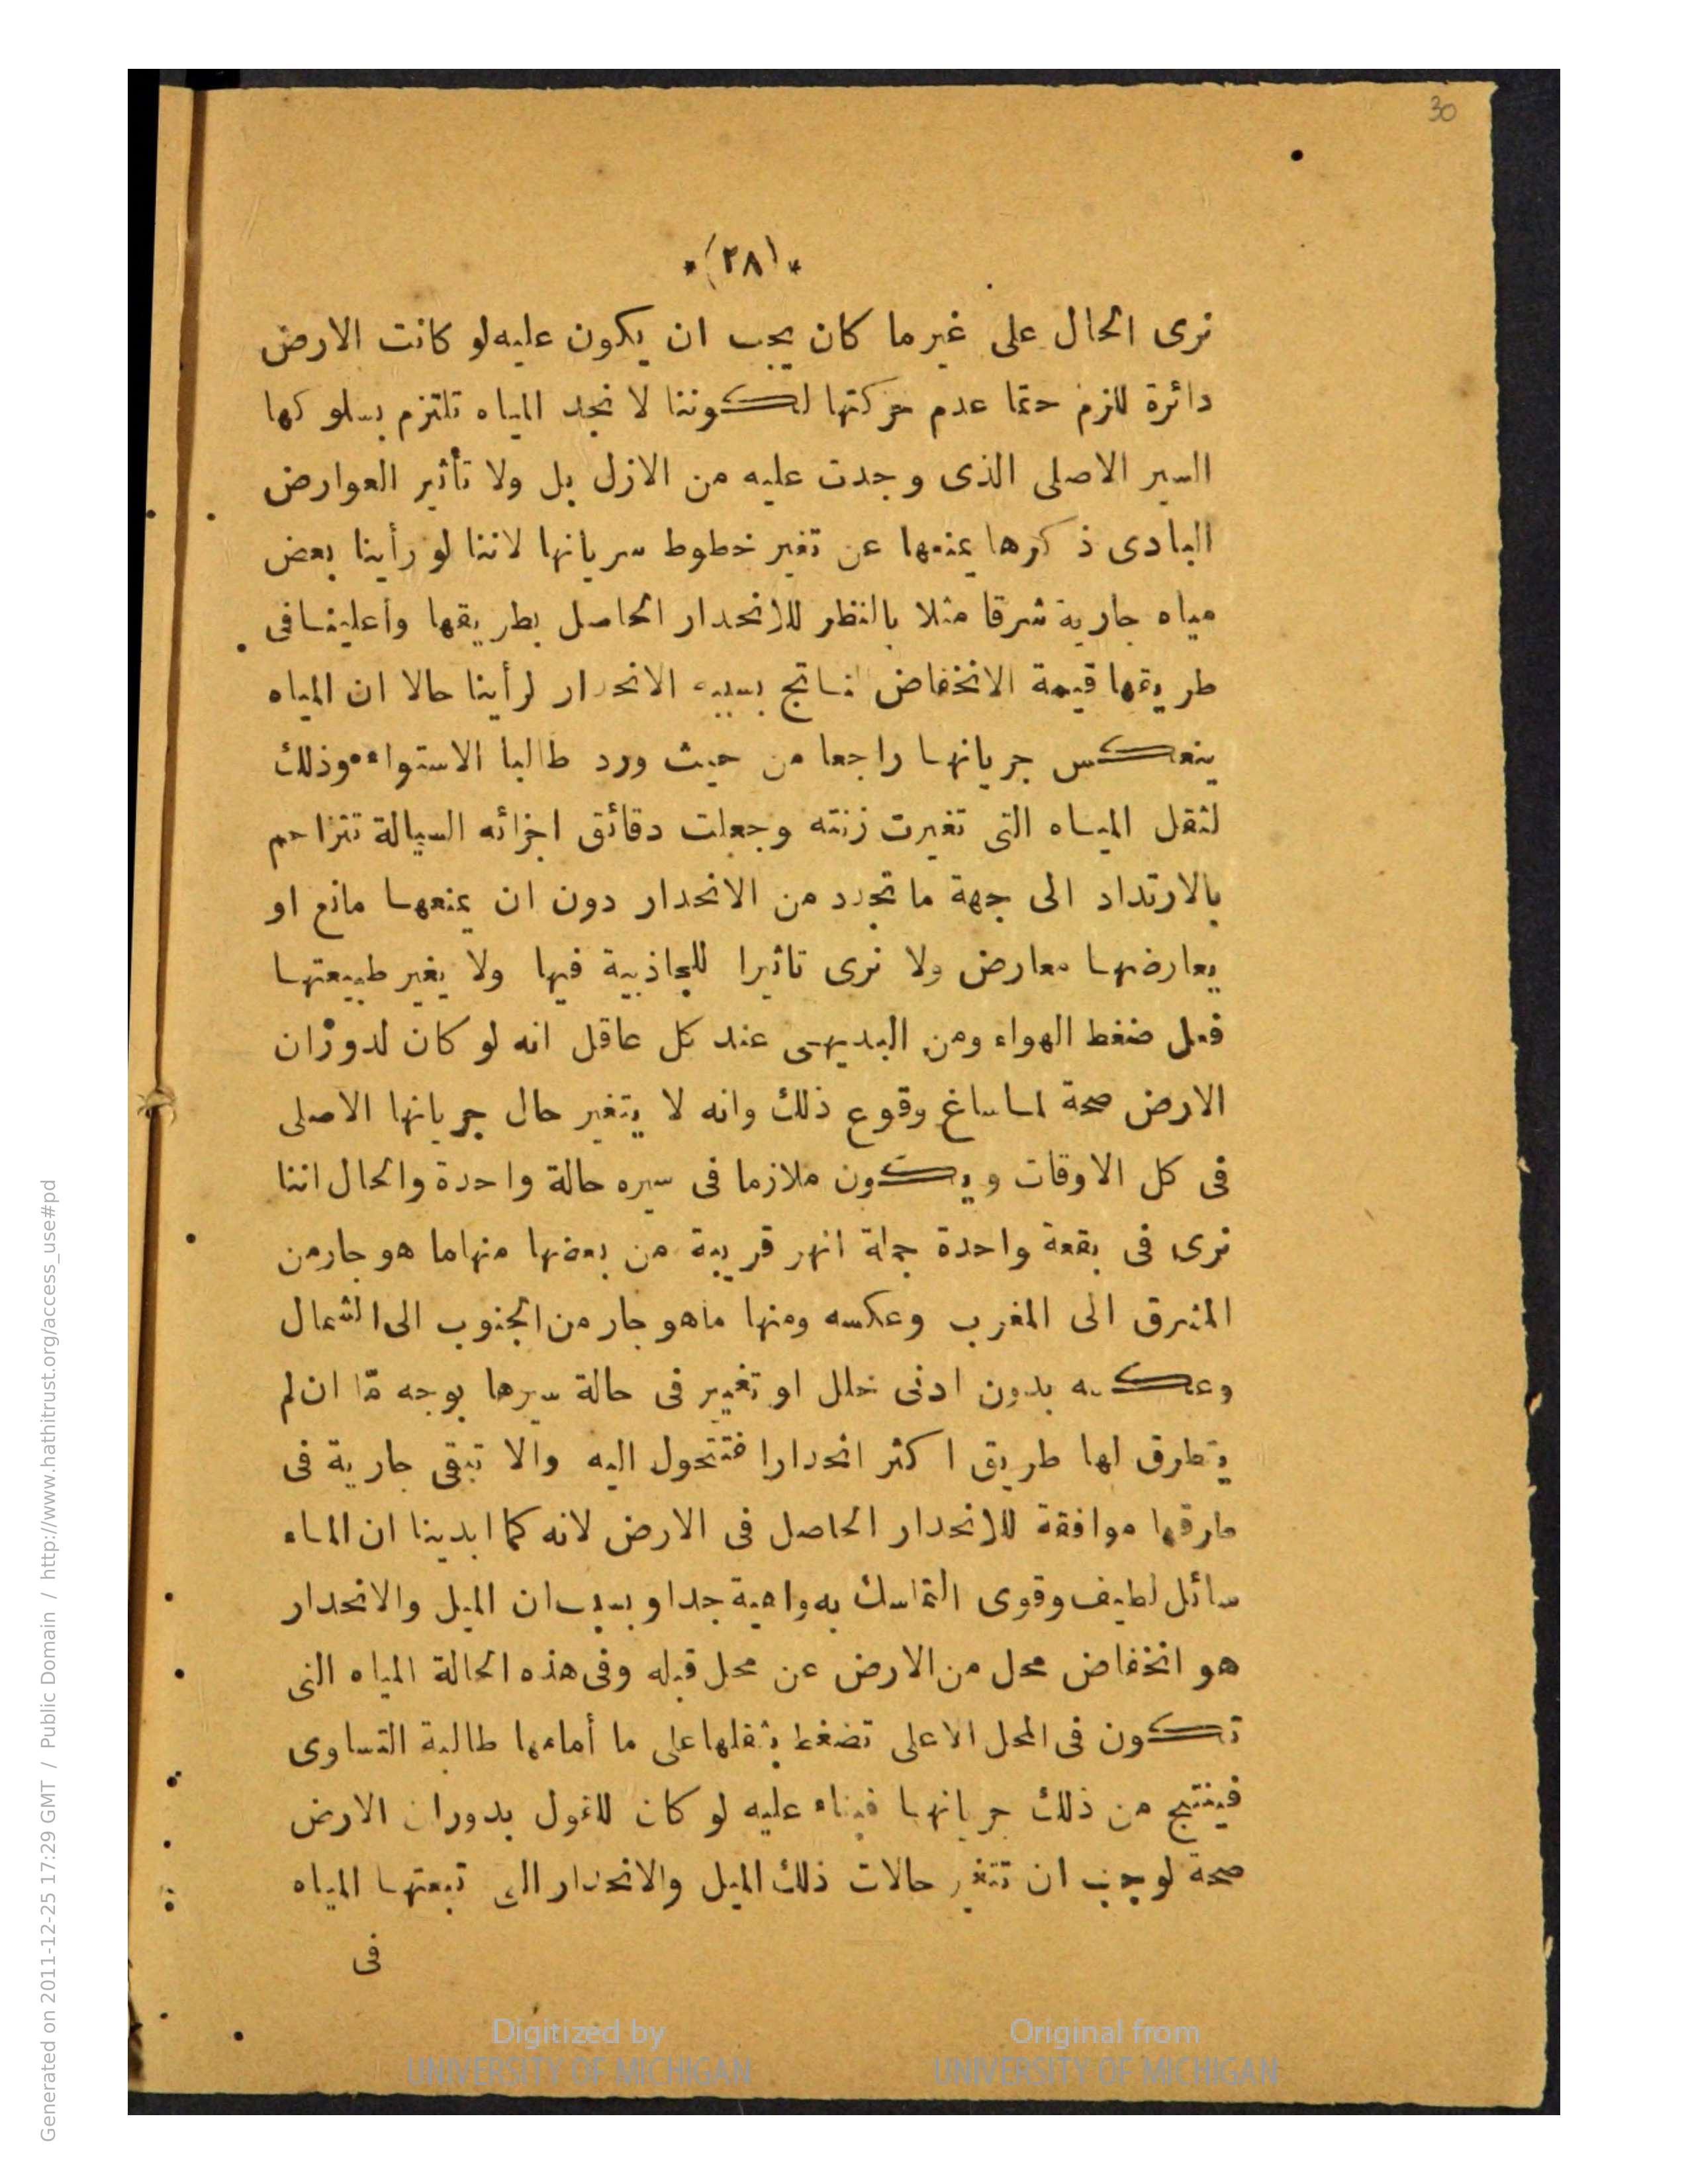 30
*(٢٨)*
نرى الحال على غير ما كان يجب ان يكون عليه لو كانت الارض
دائرة للزم حتما عدم حركتها لكوننا لا نجد المياه تلتزم بسلوكها
السير الاصلى الذى وجدت عليه من الازل بل ولا تأثير العوارض
البادى ذكرها يمنعها عن تغير خطوط سريانها لاننا لو رأينا بعض
مياه جارية شرقا مثلا بالنظر للانحدار الحاصل بطريقها وأعلينا فى
طريقها قيمة الانخفاض الناتج بسببه الانحدار لرأينا حالا ان المياه
ينعكس جريانها راجعا من حيث ورد طالبا الاستواء وذلك
لثقل المياه التى تغيرت زنته وجعلت دقائق اجزائه السيالة تتزاحم
بالارتداد الى جهة ما تجدد من الانحدار دون ان يمنعها مانع او
يعارضها معارض ولا نرى تاثيرا للجاذبية فيها ولا يغير طبيعتها
فعل ضغط الهواء ومن البديهى عند كل عاقل انه لو كان لدوران
الارض صحة لما ساغ وقوع ذلك وانه لا يتغير حال جريانها الاصلى
فى كل الاوقات ويكون ملازما فى سيره حالة واحدة والحال اننا
نرى فى بقعة واحدة جملة انهر قريبة من بعضها منها ما هو جار من
المشرق الى المغرب وعكسه ومنها ما هو جار من الجنوب الى الشمال
وعكسه بدون ادنى خلل او تغيير فى حالة سيرها بوجه مّا ان لم
يتطرق لها طريق اكثر انحدارا فتتحول اليه والا تبقى جارية فى
طرقها موافقة للانحدار الحاصل فى الارض لانه كما ابدينا ان الماء
سائل لطيف وقوى التماسك به واهية جدا وبسبب ان الميل والانحدار
هو انخفاض محل من الارض عن محل قبله وفى هذه الحالة المياه التى
تكون فى المحل الاعلى تضغط بثقلها على ما أمامها طالبة التساوى
فينتج من ذلك جريانها فبناء عليه لو كان للقول بدوران الارض
صحة لوجب ان تتغير حالات ذلك الميل والانحدار التى تبعتها المياه
فى
Digitized by
UNIVERSITY OF MICHIGAN
Original from
UNIVERSITY OF MICHIGAN
Generated on 2011-12-25 17:29 GMT / http://www.hathitrust.org/access_use#pd
Public Domain /